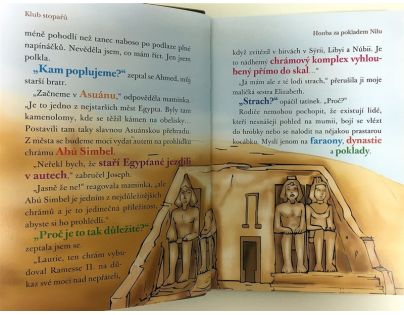 Klub stopařů
méně pohodlí než tanec naboso po podlaze plné
napínáčků. Nevěděla jsem, co mám říct. Jen jsem
polkla.
„Kam poplujeme?“ zeptal se Ahmed, můj
starší bratr.
„Začneme v Asuánu,“ odpověděla maminka.
„Je to jedno z nejstarších měst Egypta. Byly tam
kamenolomy, kde se těžil kámen na obelisky...
Postavili tam taky slavnou Asuánskou přehradu.
Z města se budeme moci vydat autem na prohlídku
chrámu Abú Simbel.
„Neřekl bych, že staří Egypťané jezdili
v autech,“ zabručel Joseph.
„Jasně že ne!“ reagovala maminka, „ale
Abú Simbel je jedním z nejdůležitějších
chrámů a je to jedinečná příležitost,
abyste si ho prohlédli.“
„Proč je to tak důležité?“
zeptala jsem se.
„Laurie, ten chrám vybu-
doval Ramesse II. na dů-
kaz své moci nad nepřáteli,
Honba za pokladem Nilu
když zvítězil v bitvách v Sýrii, Libyi a Núbii. Je
to nádherný chrámový komplex vyhlou-
bený přímo do skal...“
„Já mám ale z té lodi strach,“ přerušila ji moje
maličká sestra Elizabeth.
„Strach?“ opáčil tatínek. „Proč?“
Rodiče nemohou pochopit, že existují lidé,
kteří nesnášejí pohled na mumii, bojí se vlézt
do hrobky nebo se nalodit na nějakou prastarou
kocábku. Myslí jenom na faraony, dynastie
a poklady.